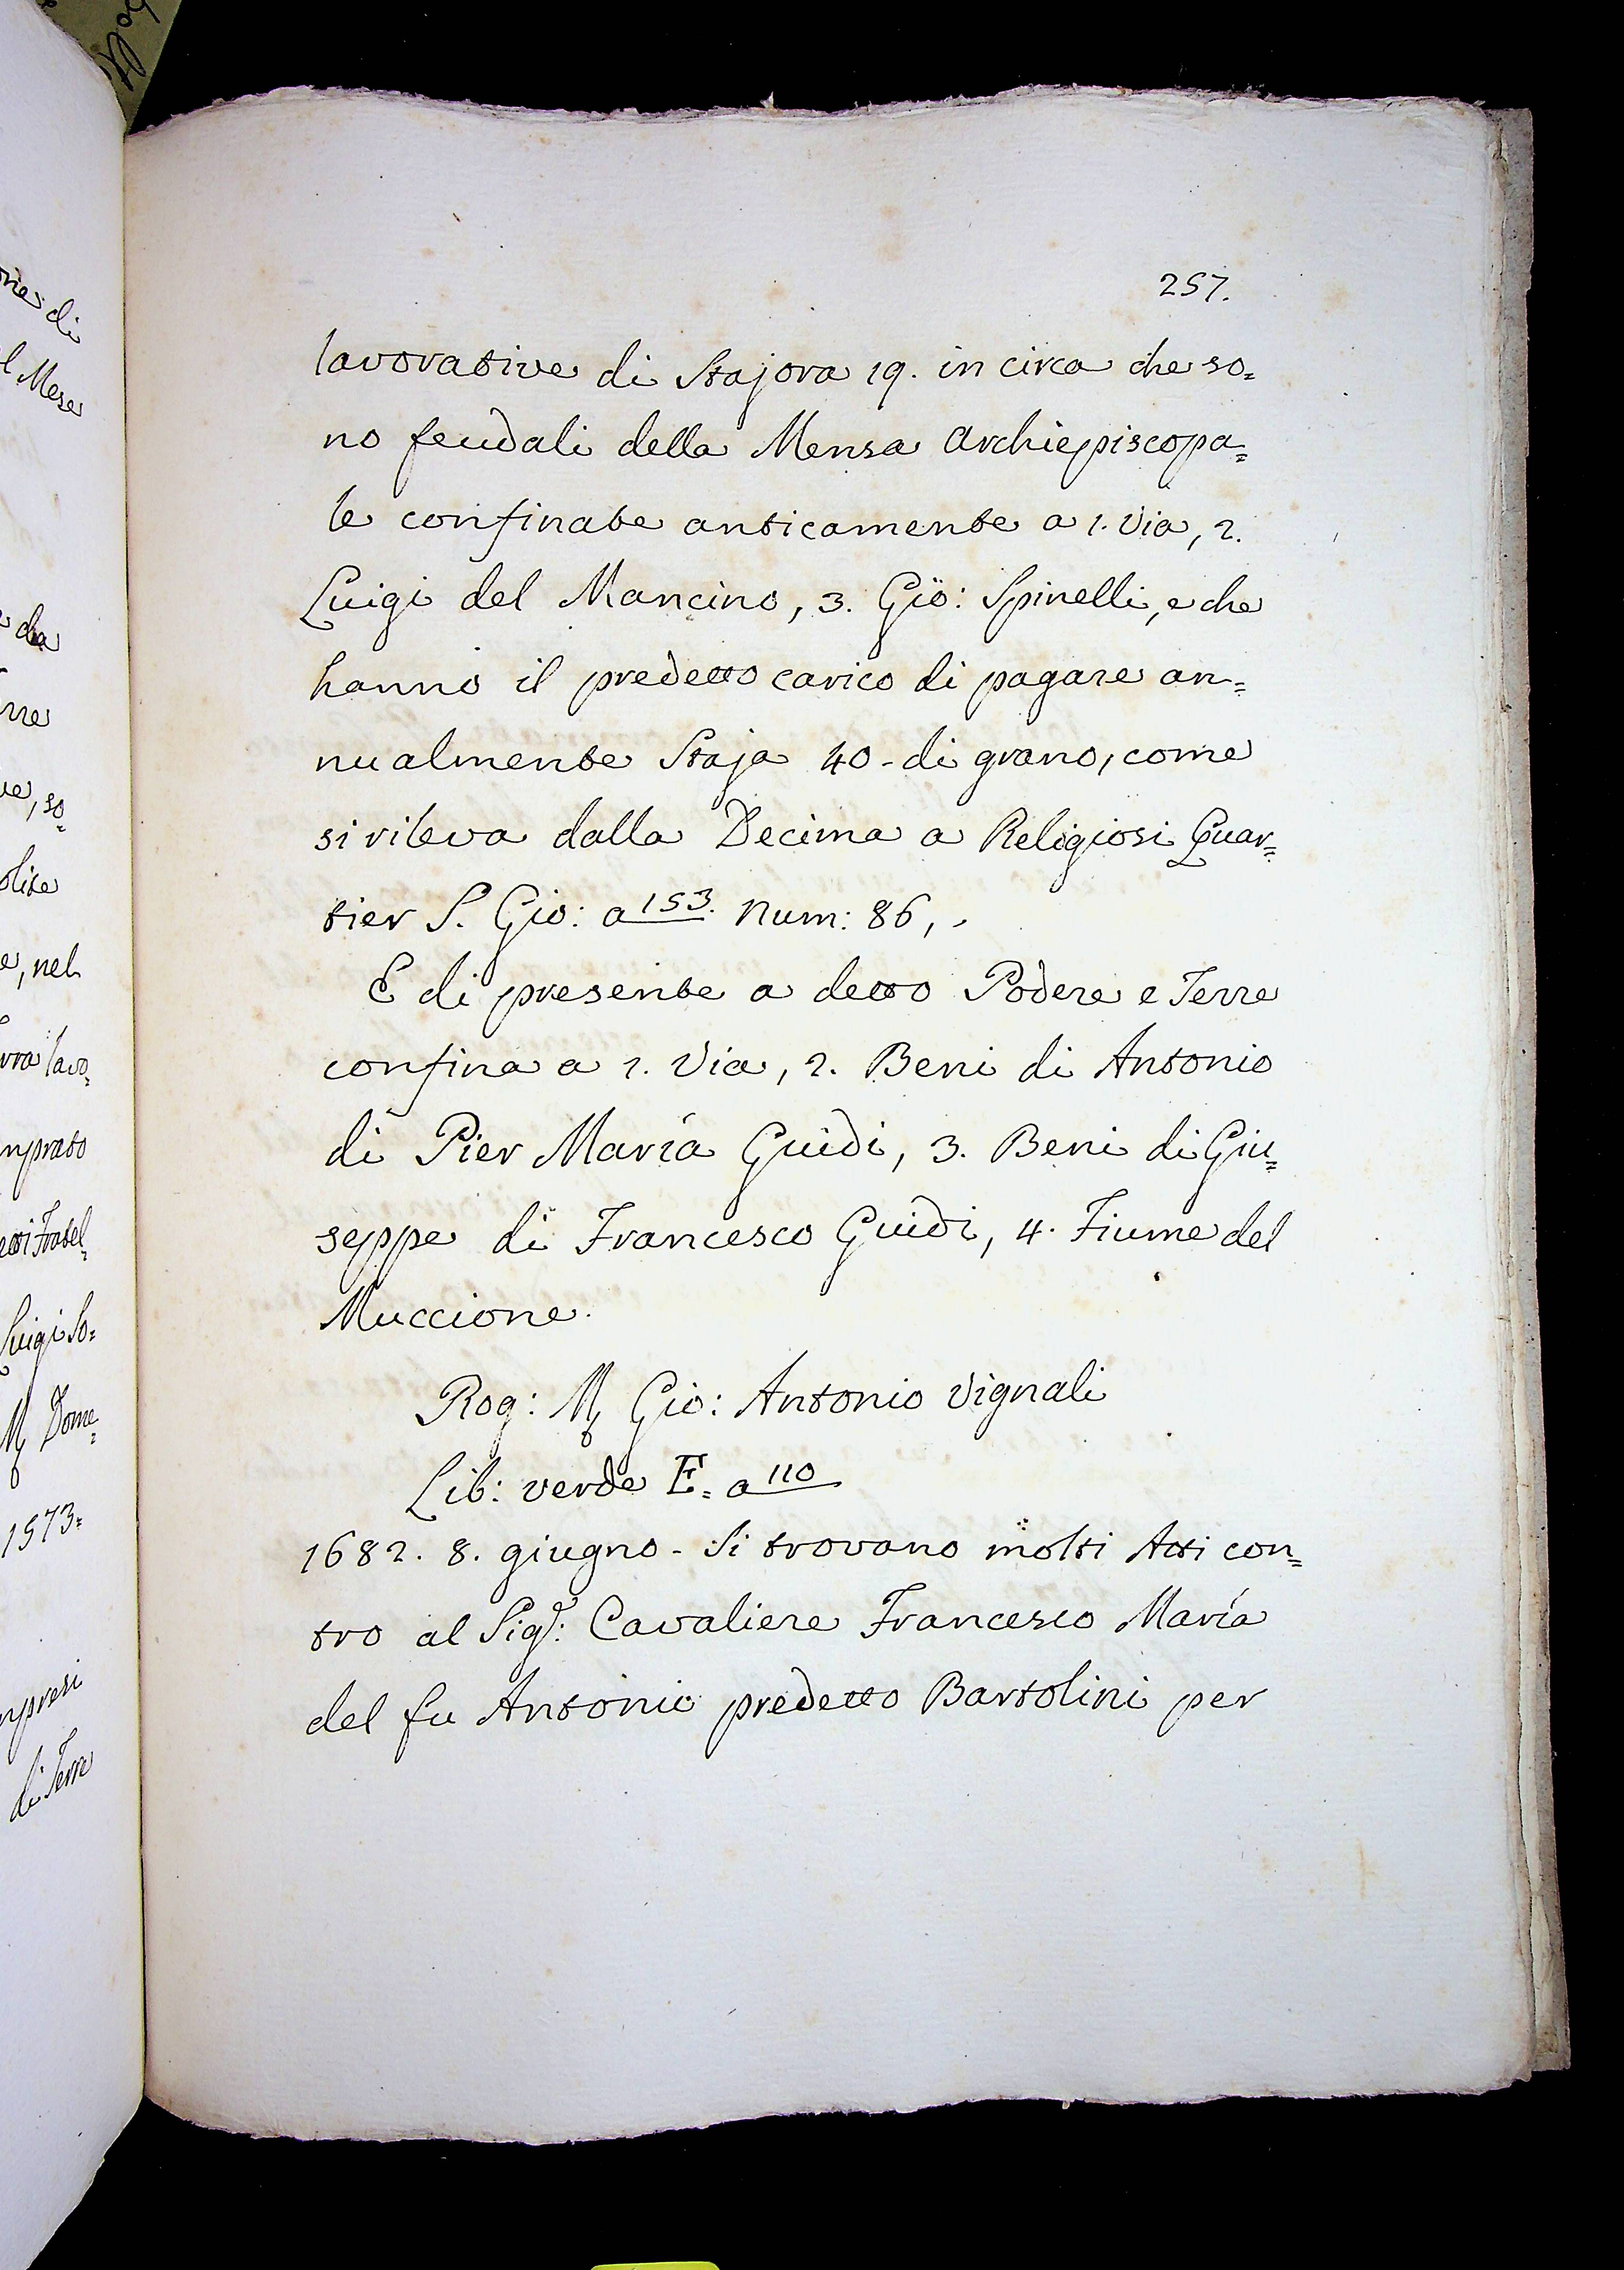 257.
lavorative di Stajora 19. in circa che so=
no feudali della Mensa Archiepiscopa=
le confinate anticamente a 1. Via, 2.
Luigi del Mancino, 3. Gio: Spinelli, e che
hanno il predetto carico di pagare an=
nualmente Staja 40 - di grano, come
si rileva dalla Decima a Religiosi Quar=
tier S. Gio: a 153. Num: 86, .
E di presente a detto Podere e Terre
confina a 1. Via, 2. Beni di Antonio
di Pier Maria Guidi, 3. Beni di Giu=
seppe di Francesco Guidi, 4. Fiume del
Muccione.
Rog: M Gio: Antonio Vignali
Lib: verde E= a 110
1682. 8. giugno - Si trovano molti Atti con=
tro al Sigr: Cavaliere Francesco Maria
del fu Antonio predetto Bartolini per